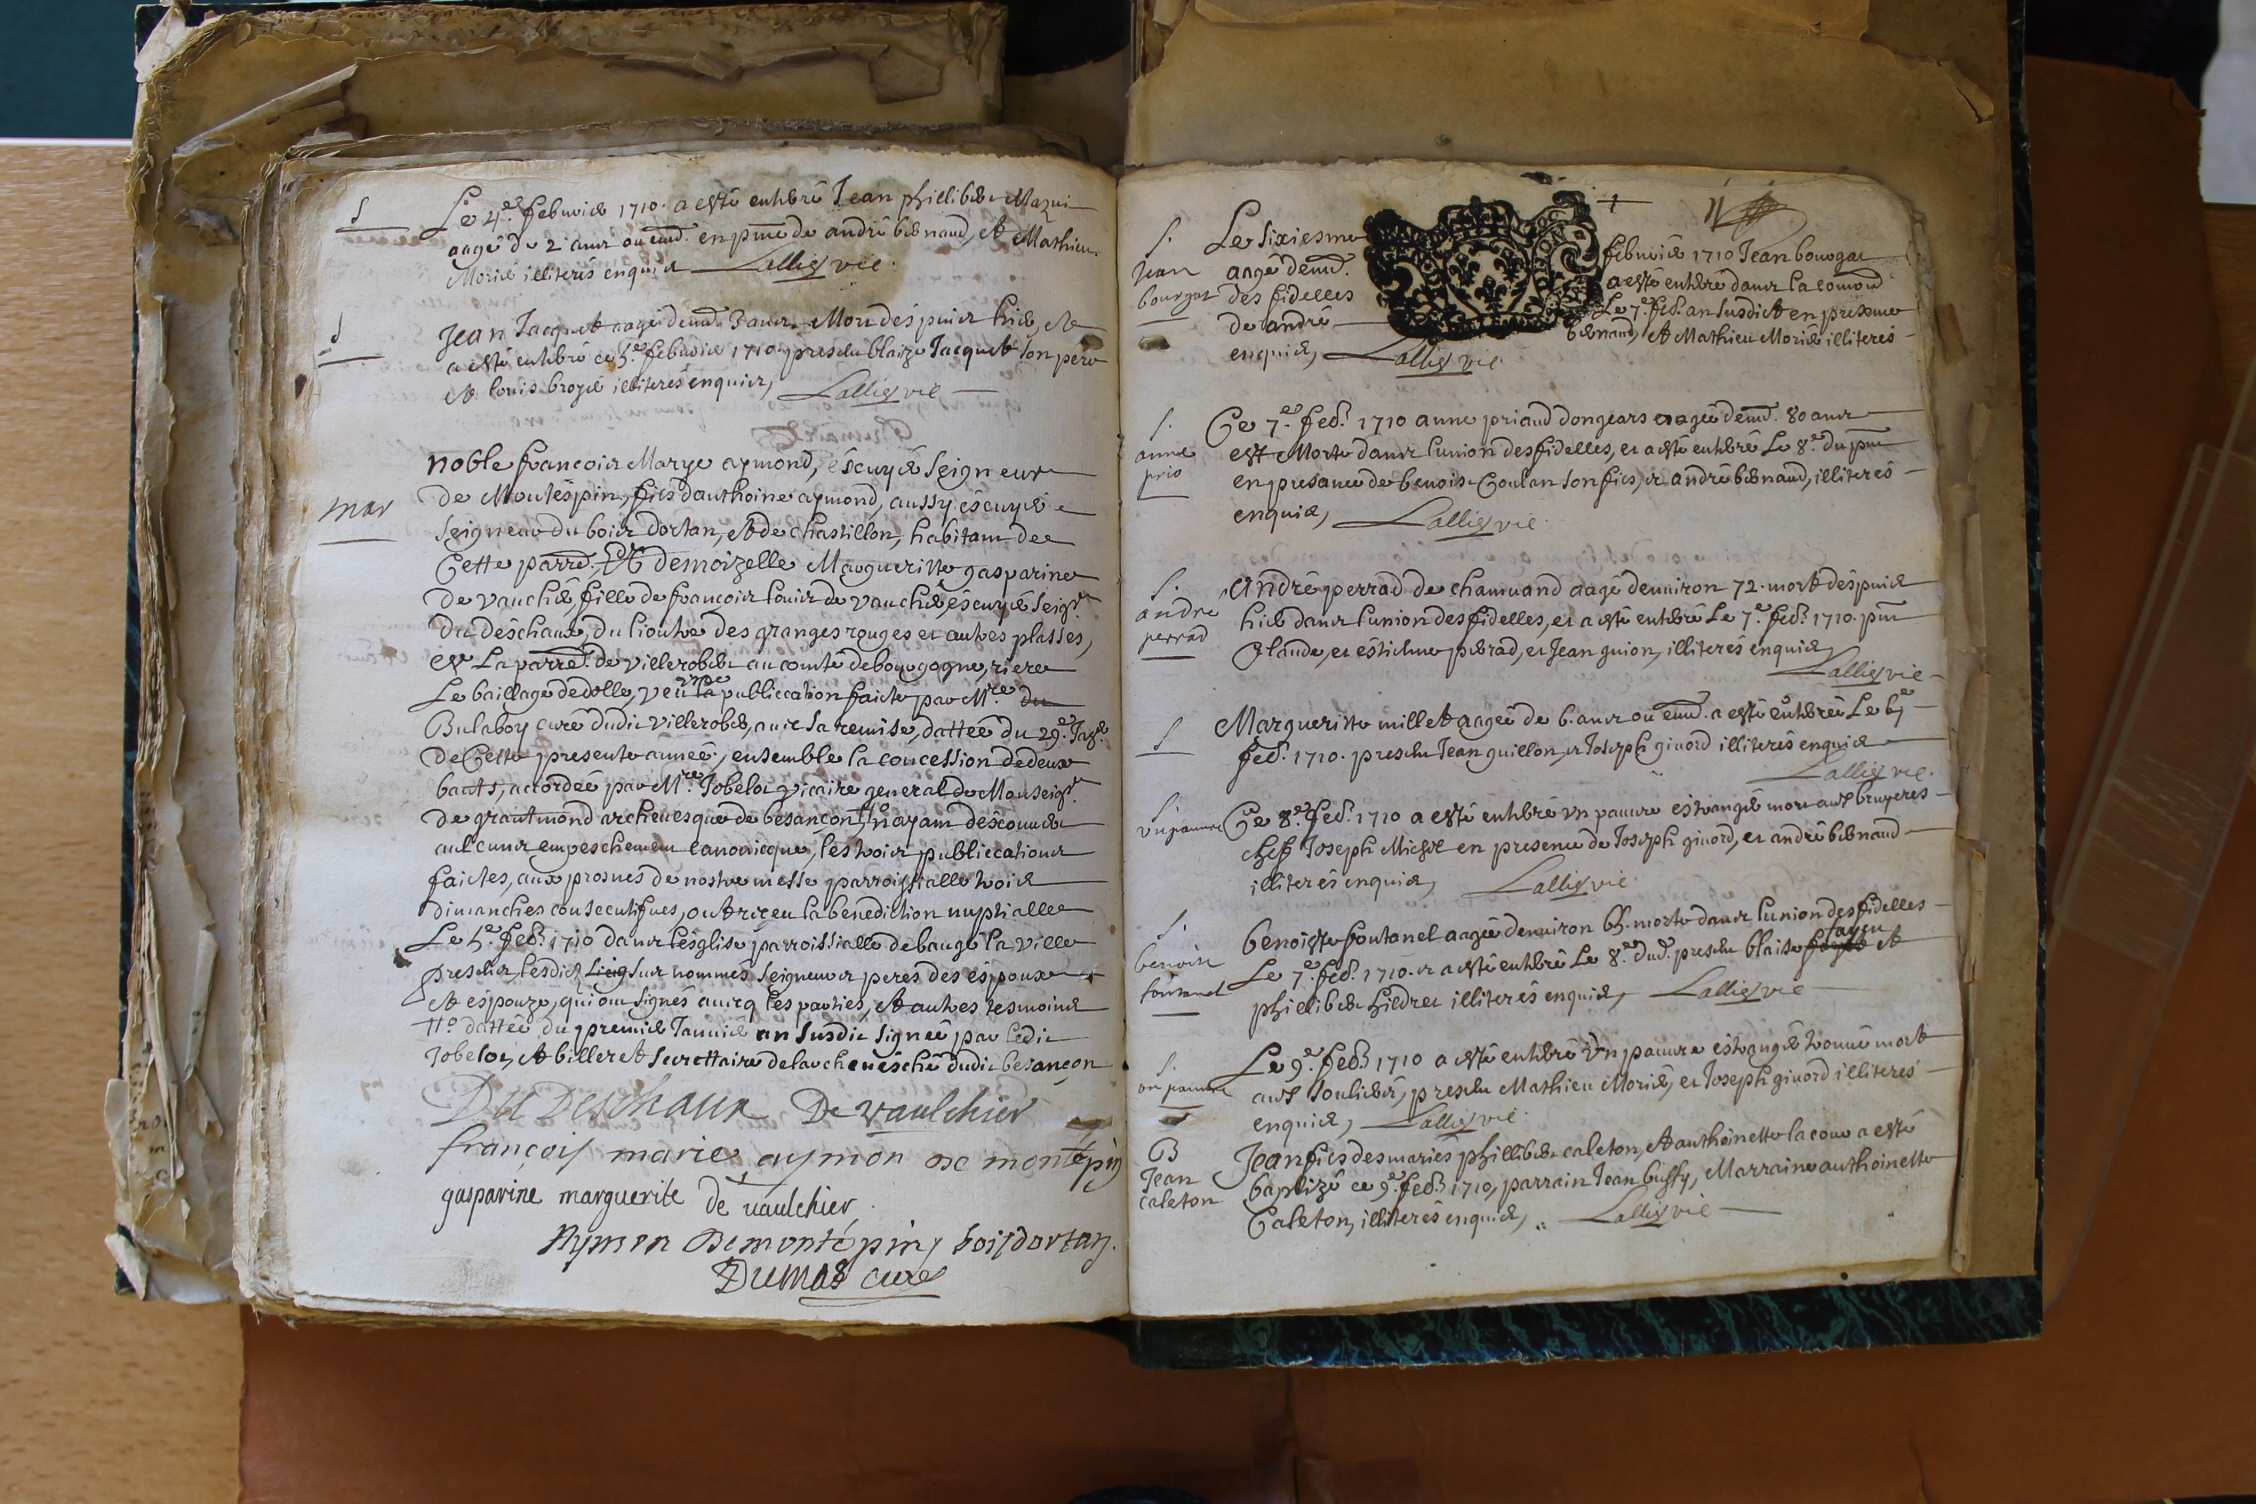 S
Le 4e. febvrier 1710. a esté enterré Jean phillibert Mazui
aagé de 2 ans ou envd. en pnce de andré bernand, et Mathieu
Morier illiterés enquis Lallier vic.
S
Jean Jacquet aagé denvd. 3 ans. Mort despuis hier, et
a esté enterré ce 5e. febvrier 1710. presens blaize Jacquet son pere
et louis broyer illiterés enquis, Lallier vic
mar
noble francois Marye aymond, éscuyer Seigneur
de Montéspin, fils d'anthoine aymond, aussy éscuyer
Seigneur du bois dortan, et de chastillon, habitant de
Cette parre. Et demoizelle Margueritte gasparine
De vauchier fille de francois louis de vauchier, éscuyer Seigr.
Du déschaux, du lioutre des granges rouges et autres plasses,
de La parre. de villerobert au comté de bourgogne, riere
Le baillage de dolle, veu la publiccation faicte par Mre. du
Bulaboy curé dudit villerobert, avec sa remise, dattée du 29e. Janr.
De Cette presente année, ensemble la concession de deux
bants, accordée par Mre. Jobelot vicaire general de Monseigr.
De grantmond archevesque de besançon, n'ayant descouvert
aulcuns empeschement canonicque, les trois publiccations
faictes, aux prosnes de nostre messe parroissialle trois
dimanches consecutifves, ont receu la benediction nuptialle
Le 5e. feb. 1710 dans l'ésglise parroissialle de baugé la ville
presens, lesdits Sieurs sus nommés seigneurs peres des éspoux
et éspouze, qui ont signés avecq les parties, et autres tesmoins
tto dattée du premier Janvier an susdit signée par ledit
Jobelot, et billeret secrettaire de l'archevésché dudit besançon
Du Deschaux De vaulchier
françois marie aymon de montépin
gasparine marguerite de vaulchier
Aymon De montépin, boisdortan.
Dumas curé
S.
Jean
bourgat
Le Sixiesme febvrier 1710 Jean bourgat
aagé denvd. a esté enterré dans la comond
des fidelles Le 7e. feb. an susdit en presence
de andré bernand, et Mathieu Morier illiterés
enquis, Lallier vic
S.
anne
prio
Ce 7e. feb. 1710 anne priaud dongears aagée denvd. 80 ans
est Morte dans l'union des fidelles, et a esté enterré Le 8e. du pnt
en presance de benoist Coulan son fils, et andré bernand, illiterés
enquis, Lallier vic.
S.
andré
perrad
André perrad de chamnand aagé denviron 72. mort déspuis
hier dans l'union des fidelles, et a esté enterré Le 7e. feb. 1710. pnt
Claude, et éstienne perrad, et Jean guion, illiterés enquis,
Lallier vic
S
Margueritte millet aagée de 6. ans ou envd. a esté enterrée Le 6e
feb. 1710. presens Jean guillon, et Joseph givord illiterés enquis
Lallier vic.
S.
vn pauvre
Ce 8e. feb. 1710 a esté enterré vn pauvre éstranger mort aux bruyeres
chez Joseph Michel en presence de Joseph givord, et andré bernand
illiterés enquis, Lallier vic.
S.
benoiste
fontanel
benoiste fontanel aagée denviron 65. morte dans l'union des fidelles
Le 7e. feb. 1710. et a esté enterré Le 8e. dud. presens blaise et
phillibert hidret illiterés enquis, Lallier vic
S.
vn pauvre
Le 9e. feb. 1710 a esté enterré vn pauvre éstranger trouvé mort
aux souliers, presens Mathieu Morier, et Joseph givord illiterés
enquis, Lallier vic.
B
Jean
caleton
Jean fils des mariés phillibert caleton, et anthoinette lacour a esté
baptizé ce 9e. feb. 1710, parrain Jean buffy, Marraine anthoinette
Caleton, illiterés enquis, Lallier vic